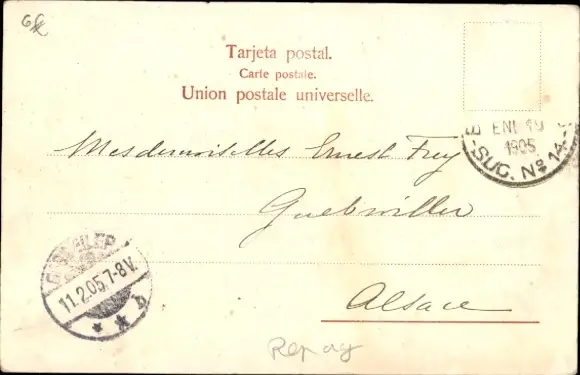 Tarjeta postal.
Carte postale.
Union postale universelle.
ENE 19
1905
SUC. Nº 14
Mesdemoiselles Ernest Frey
Guebwiller
11.2.05.7-8V.
b
Alsace
Rep ag